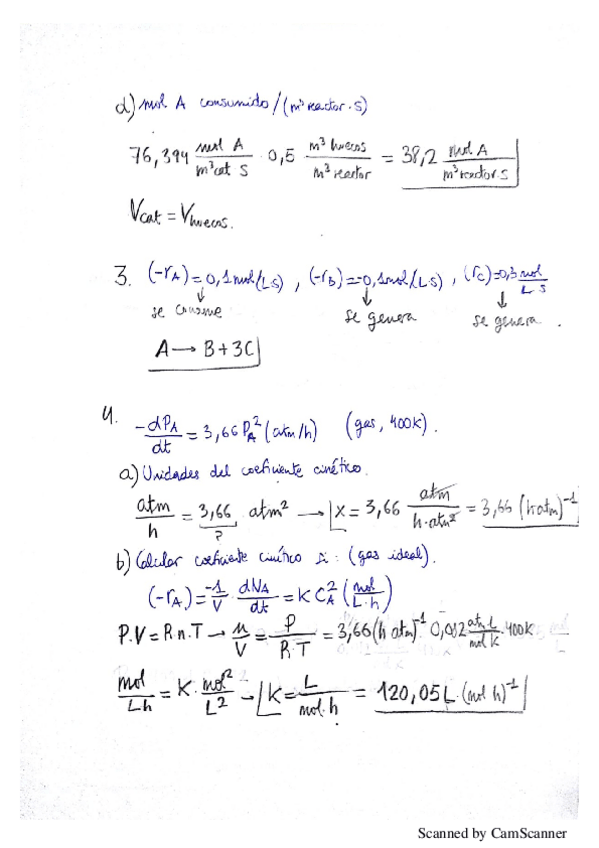 d) mol A consumido/(m³ reactor·s)
76,394 mol A / m³cat s · 0,5 m³ huecos / m³ reactor = 38,2 mol A / m³ reactor·s
Vcat = Vhuecos.
3. (-rA)=0,1mol/(L s), (-rB)=-0,1mol/(L s), (rC)=0,3 mol / L s
↓ ↓ ↓
se consume se genera se genera.
A → B+3C
4. -dPA/dt = 3,66 PA² (atm/h) (gas, 400K).
a) Unidades del coeficiente cinético.
atm/h = 3,66 atm² → x = 3,66 atm / h·atm² = 3,66 (h atm)⁻¹
?
b) Calcular coeficiente cinético si: (gas ideal).
(-rA)= -1/V dNA/dt = K CA² (mol / L·h)
P.V=R n.T → n/V = P / R·T = 3,66(h atm)⁻¹ 0,082 atm·L / mol K · 400K
mol / L h = K · mol² / L² → K = L / mol·h = 120,05 L·(mol h)⁻¹
Scanned by CamScanner